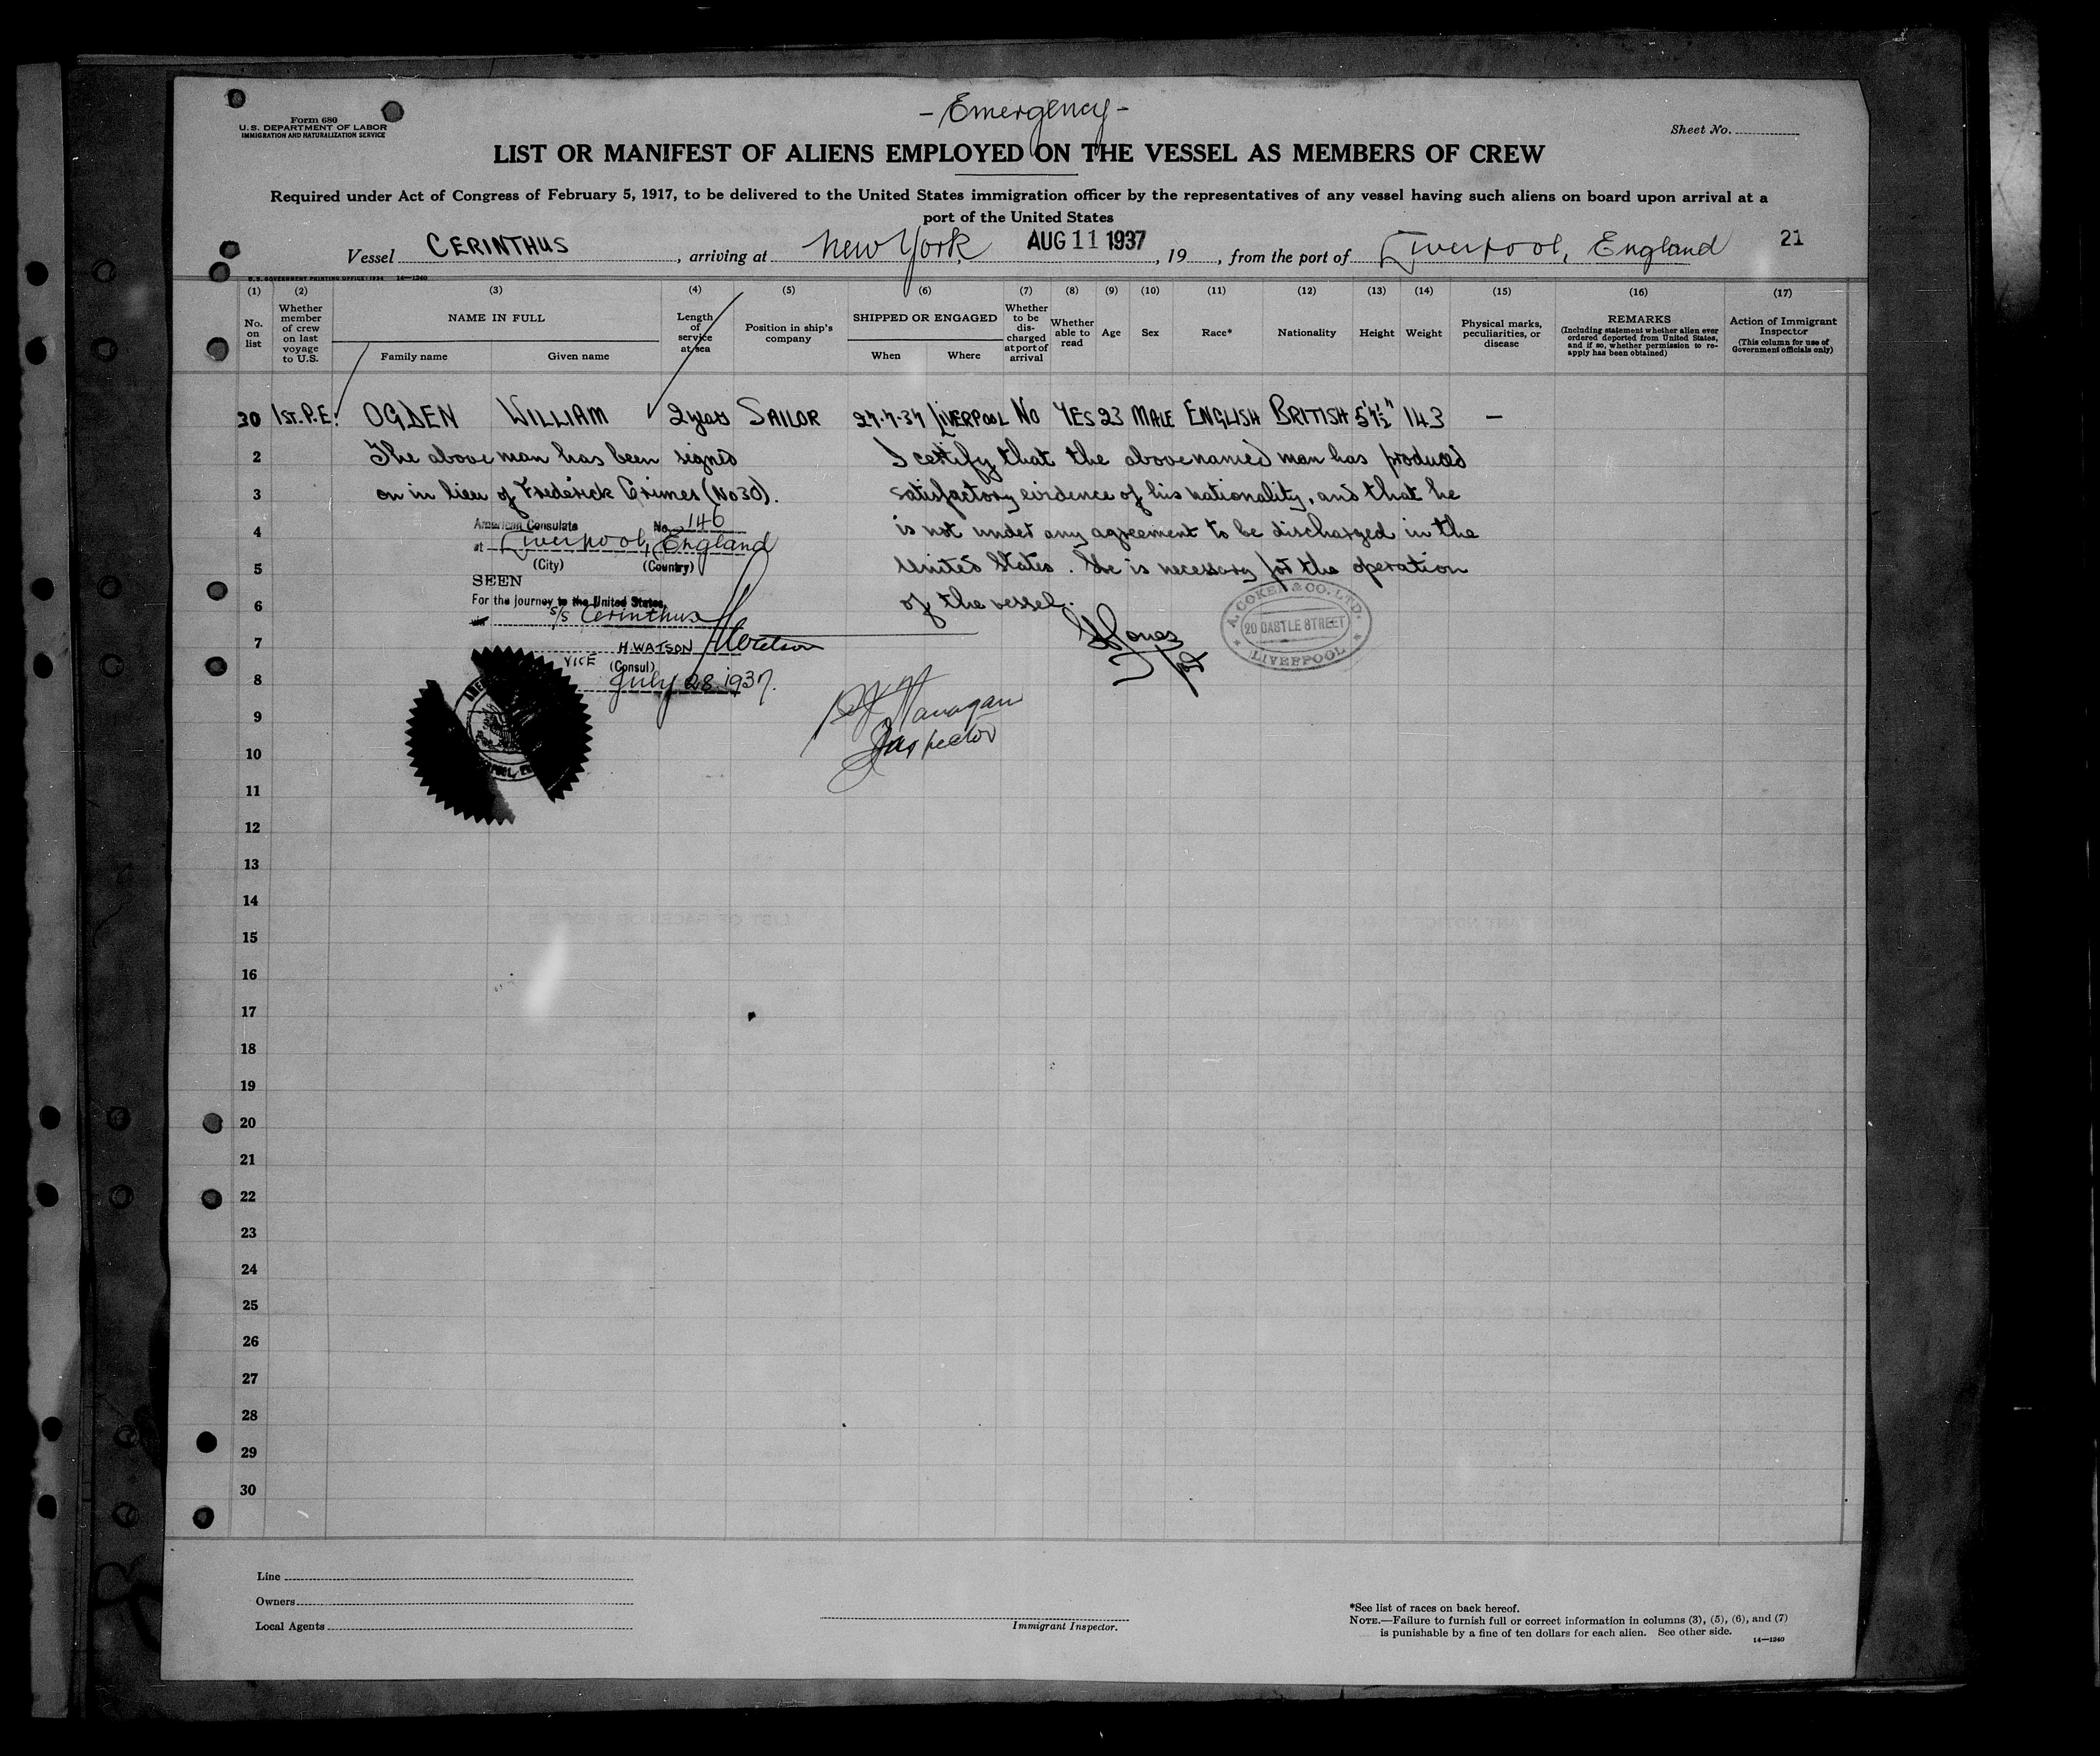 - Emergency -
Form 680
U.S. DEPARTMENT OF LABOR
IMMIGRATION AND NATURALIZATION SERVICE
Sheet No.
LIST OR MANIFEST OF ALIENS EMPLOYED ON THE VESSEL AS MEMBERS OF CREW
Required under Act of Congress of February 5, 1917, to be delivered to the United States immigration officer by the representatives of any vessel having such aliens on board upon arrival at a
port of the United States
Vessel CERINTHUS, arriving at New York, AUG 11 1937, 19, from the port of Liverpool, England 21
U.S. GOVERNMENT PRINTING OFFICE: 1934 14-1240
(1) (2) (3) (4) (5) (6) (7) (8) (9) (10) (11) (12) (13) (14) (15) (16) (17)
No. on list
Whether member of crew on last voyage to U.S.
NAME IN FULL
Family name
Given name
Length of service at sea
Position in ship's company
SHIPPED OR ENGAGED
When
Where
Whether to be discharged at port of arrival
Whether able to read
Age
Sex
Race*
Nationality
Height
Weight
Physical marks, peculiarities, or disease
REMARKS
(Including statement whether alien ever ordered deported from United States, and if so, whether permission to reapply has been obtained)
Action of Immigrant Inspector
(This column for use of Government officials only)
30 1ST. P.E. OGDEN WILLIAM 2 years SAILOR 27-7-37 LIVERPOOL NO YES 23 MALE ENGLISH BRITISH 5'7½" 143 —
2 The above man has been signed
3 on in lieu of Frederick Grimes (No 30).
I certify that the above named man has produced
satisfactory evidence of his nationality, and that he
is not under any agreement to be discharged in the
United States. He is necessary for the operation
of the vessel.
American Consulate No. 146
at Liverpool, England
(City) (Country)
SEEN
For the journey to the United States
S/S Cerinthus
H. WATSON
VICE (Consul)
July 28 1937.
Jones
A. COKER & CO. LTD.
20 CASTLE STREET
LIVERPOOL
Inspector
4
5
6
7
8
9
10
11
12
13
14
15
16
17
18
19
20
21
22
23
24
25
26
27
28
29
30
Line
Owners
Local Agents
Immigrant Inspector.
*See list of races on back hereof.
NOTE.—Failure to furnish full or correct information in columns (3), (5), (6), and (7)
is punishable by a fine of ten dollars for each alien. See other side.
14-1240